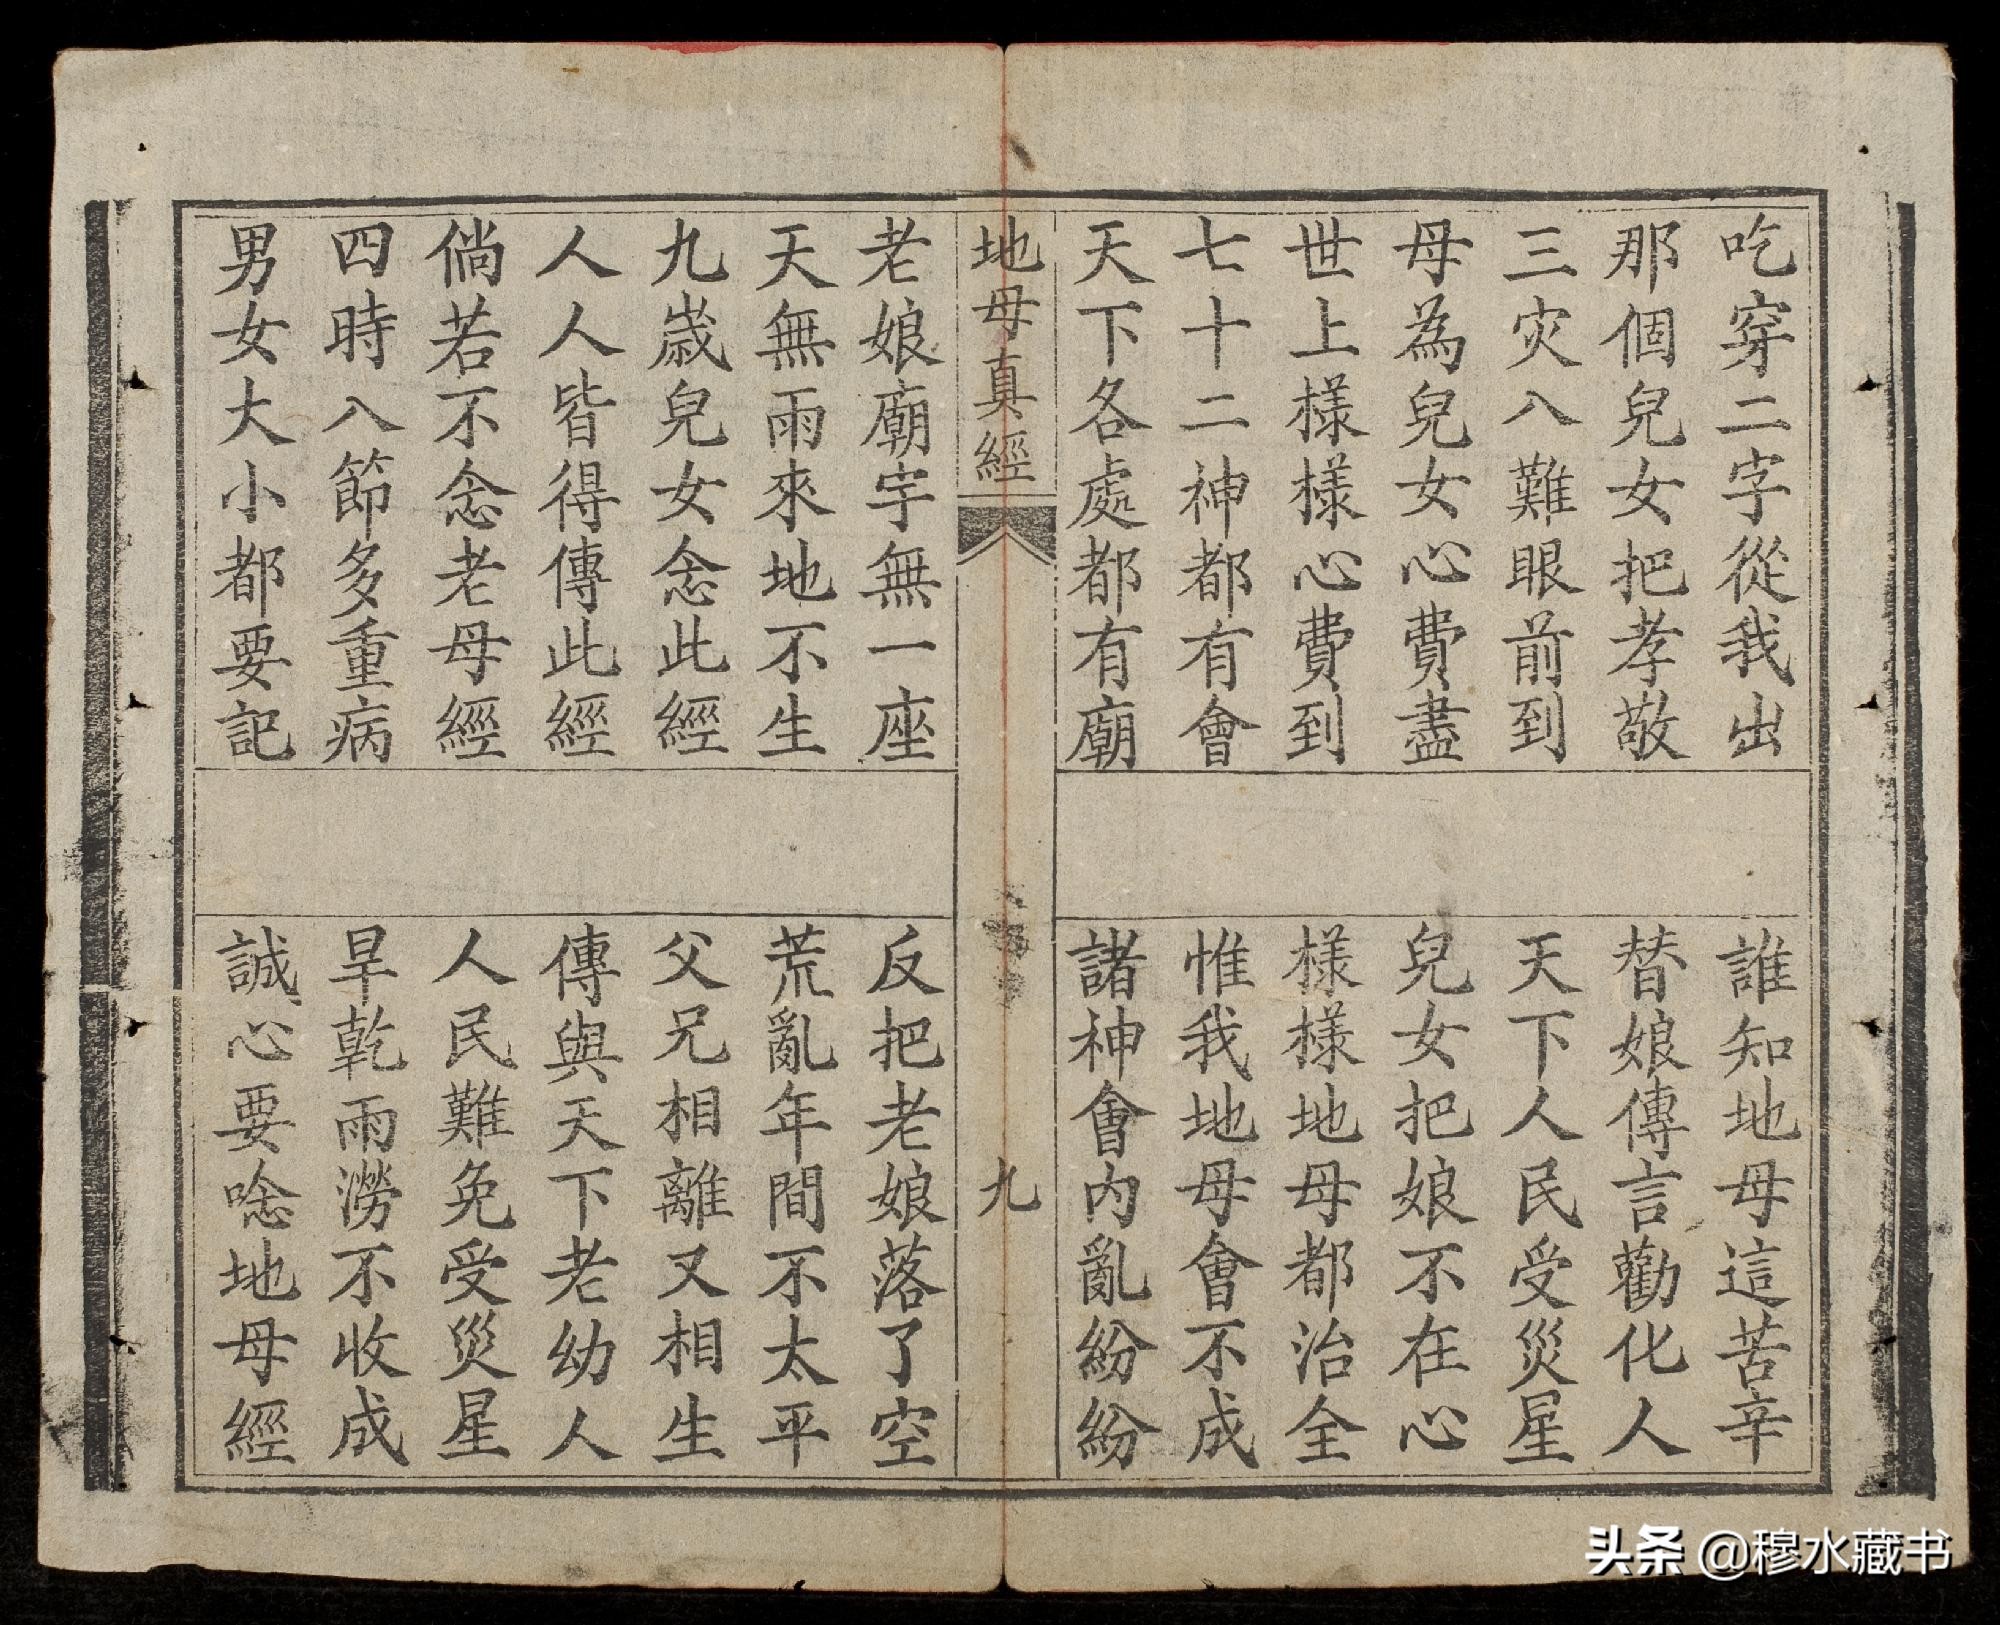 吃穿二字從我出
誰知地母這苦辛
那個兒女把孝敬
替娘傳言勸化人
三灾八難眼前到
天下人民受災星
母為兒女心費盡
兒女把娘不在心
世上樣樣心費到
樣樣地母都治全
七十二神都有會
惟我地母會不成
天下各處都有廟
諸神會內亂紛紛
地母真經
九
老娘廟宇無一座
反把老娘落了空
天無雨來地不生
荒亂年間不太平
九歲兒女念此經
父兄相離又相生
人人皆得傳此經
傳與天下老幼人
倘若不念老母經
人民難免受災星
四時八節多重病
旱乾雨澇不收成
男女大小都要記
誠心要唸地母經
头条 @穆水藏书